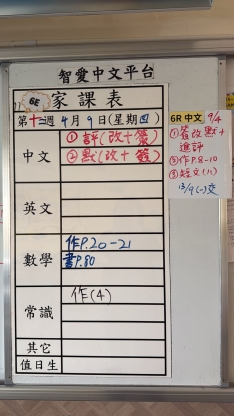 智愛中文平台
6E 家課表
第十三週 4月9日(星期四)
中文 ①評(改+簽)
②默(改+簽)
英文
數學 作P.20-21
書P.80
常識 作(4)
其它
值日生
6R 中文 9/4
①簽改默+
進評
②作P.8-10
③短文(八)
13/4(一)交